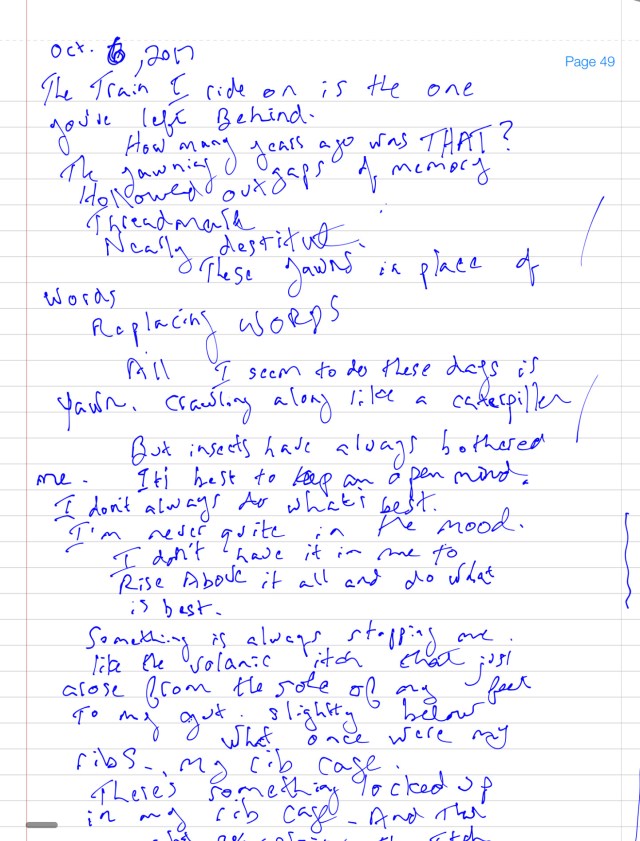 Oct. 6, 2017
Page 49
The Train I ride on is the one
you've left Behind.
How many years ago was THAT?
The yawning
Hollowed out gaps of memory
Threadmark
Nearly destitut.
These yawns in place of
words
Replacing WORDS
All I seem to do these days is
yawn. Crawling along like a caterpiller
But insects have always bothered
me. It's best to keep an open mind.
I don't always do what's best.
I'm never quite in the mood.
I don't have it in me to
Rise Above it all and do what
is best.
Something is always stopping me.
like the volanic itch that just
arose from the sole of my feet
To my gut. slightly below
what once were my
ribs. My rib cage.
There's something locked up
in my rib cage - And that
the Itch